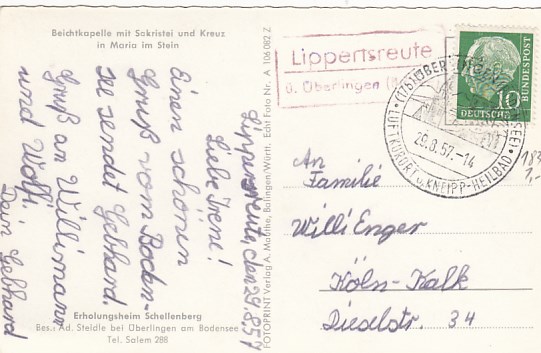 Beichtkapelle mit Sakristei und Kreuz
in Maria im Stein
Lippertsreute, den 29.8.57
Liebe Irene!
Einen schönen
Gruß vom Boden-
see sendet Gebhard.
Gruß an Willimann
und Wolfi
Dein Gebhard
Erholungsheim Schellenberg
Bes.: Ad. Steidle bei Überlingen am Bodensee
Tel. Salem 288
FOTOPRINT Verlag A. Mauthe, Balingen/Württ. Echt Foto Nr. A 106 082 Z
Lippertsreute
ü. Überlingen
(17b) ÜBERLINGEN (BODENSEE)
29.8.57.-14
LUFTKURORT u. KNEIPP-HEILBAD
10
DEUTSCHE
BUNDESPOST
183
1,-
An
Familie
Willi Enger
Köln-Kalk
Dieselstr. 34